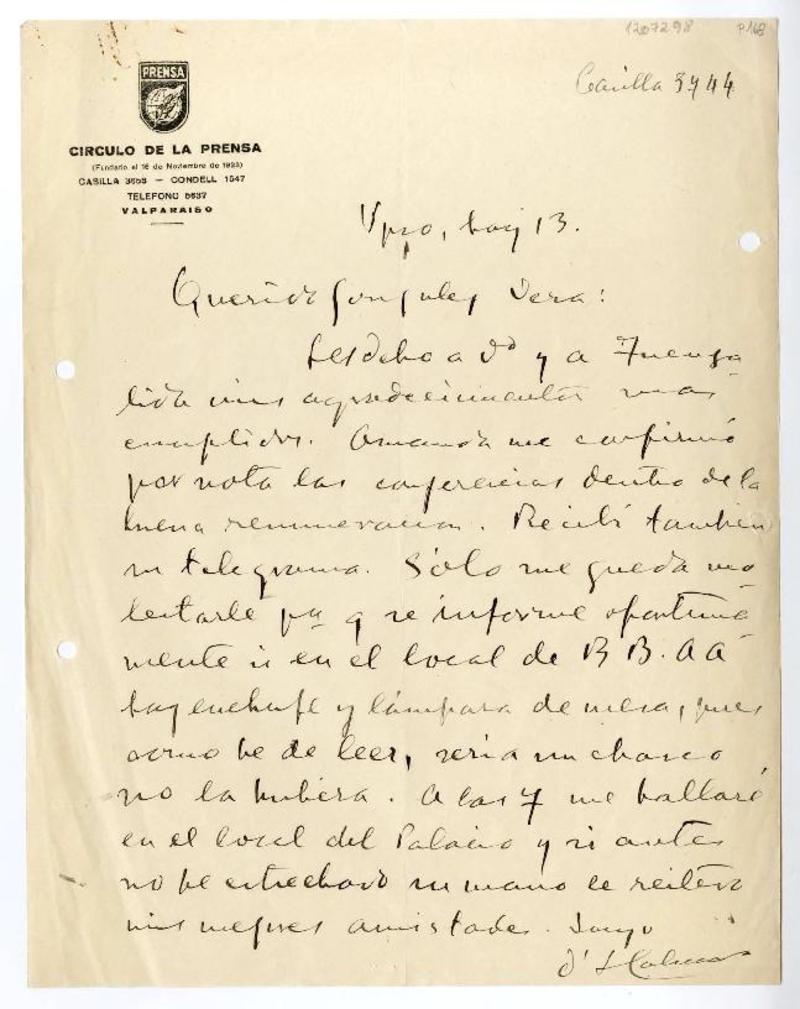 1207298 P168
Casilla 3744
PRENSA
CIRCULO DE LA PRENSA
(Fundado el 16 de Noviembre de 1923)
CASILLA 3653 — CONDELL 1547
TELEFONO 5637
VALPARAISO
Vpso, hoy 13.
Querido Gonzalez Vera:
Les debo a Vd y a Fuenza
lida mis agradecimientos mas
cumplidos. Amanda me confirmó
por nota las conferencias dentro de la
buena remuneracion. Recibí tambien
su telegrama. Sólo me queda mo
lestarle pa q se informe oportuna
mente si en el local de B B. A A
hay enchufe y lámpara de mesa, pues
como he de leer, seria un chasco
no la hubiera. A las 7 me hallaré
en el local del Palacio y si antes
no he estrechado su mano le reitero
mis mejores amistades. Suyo
d'Halmar